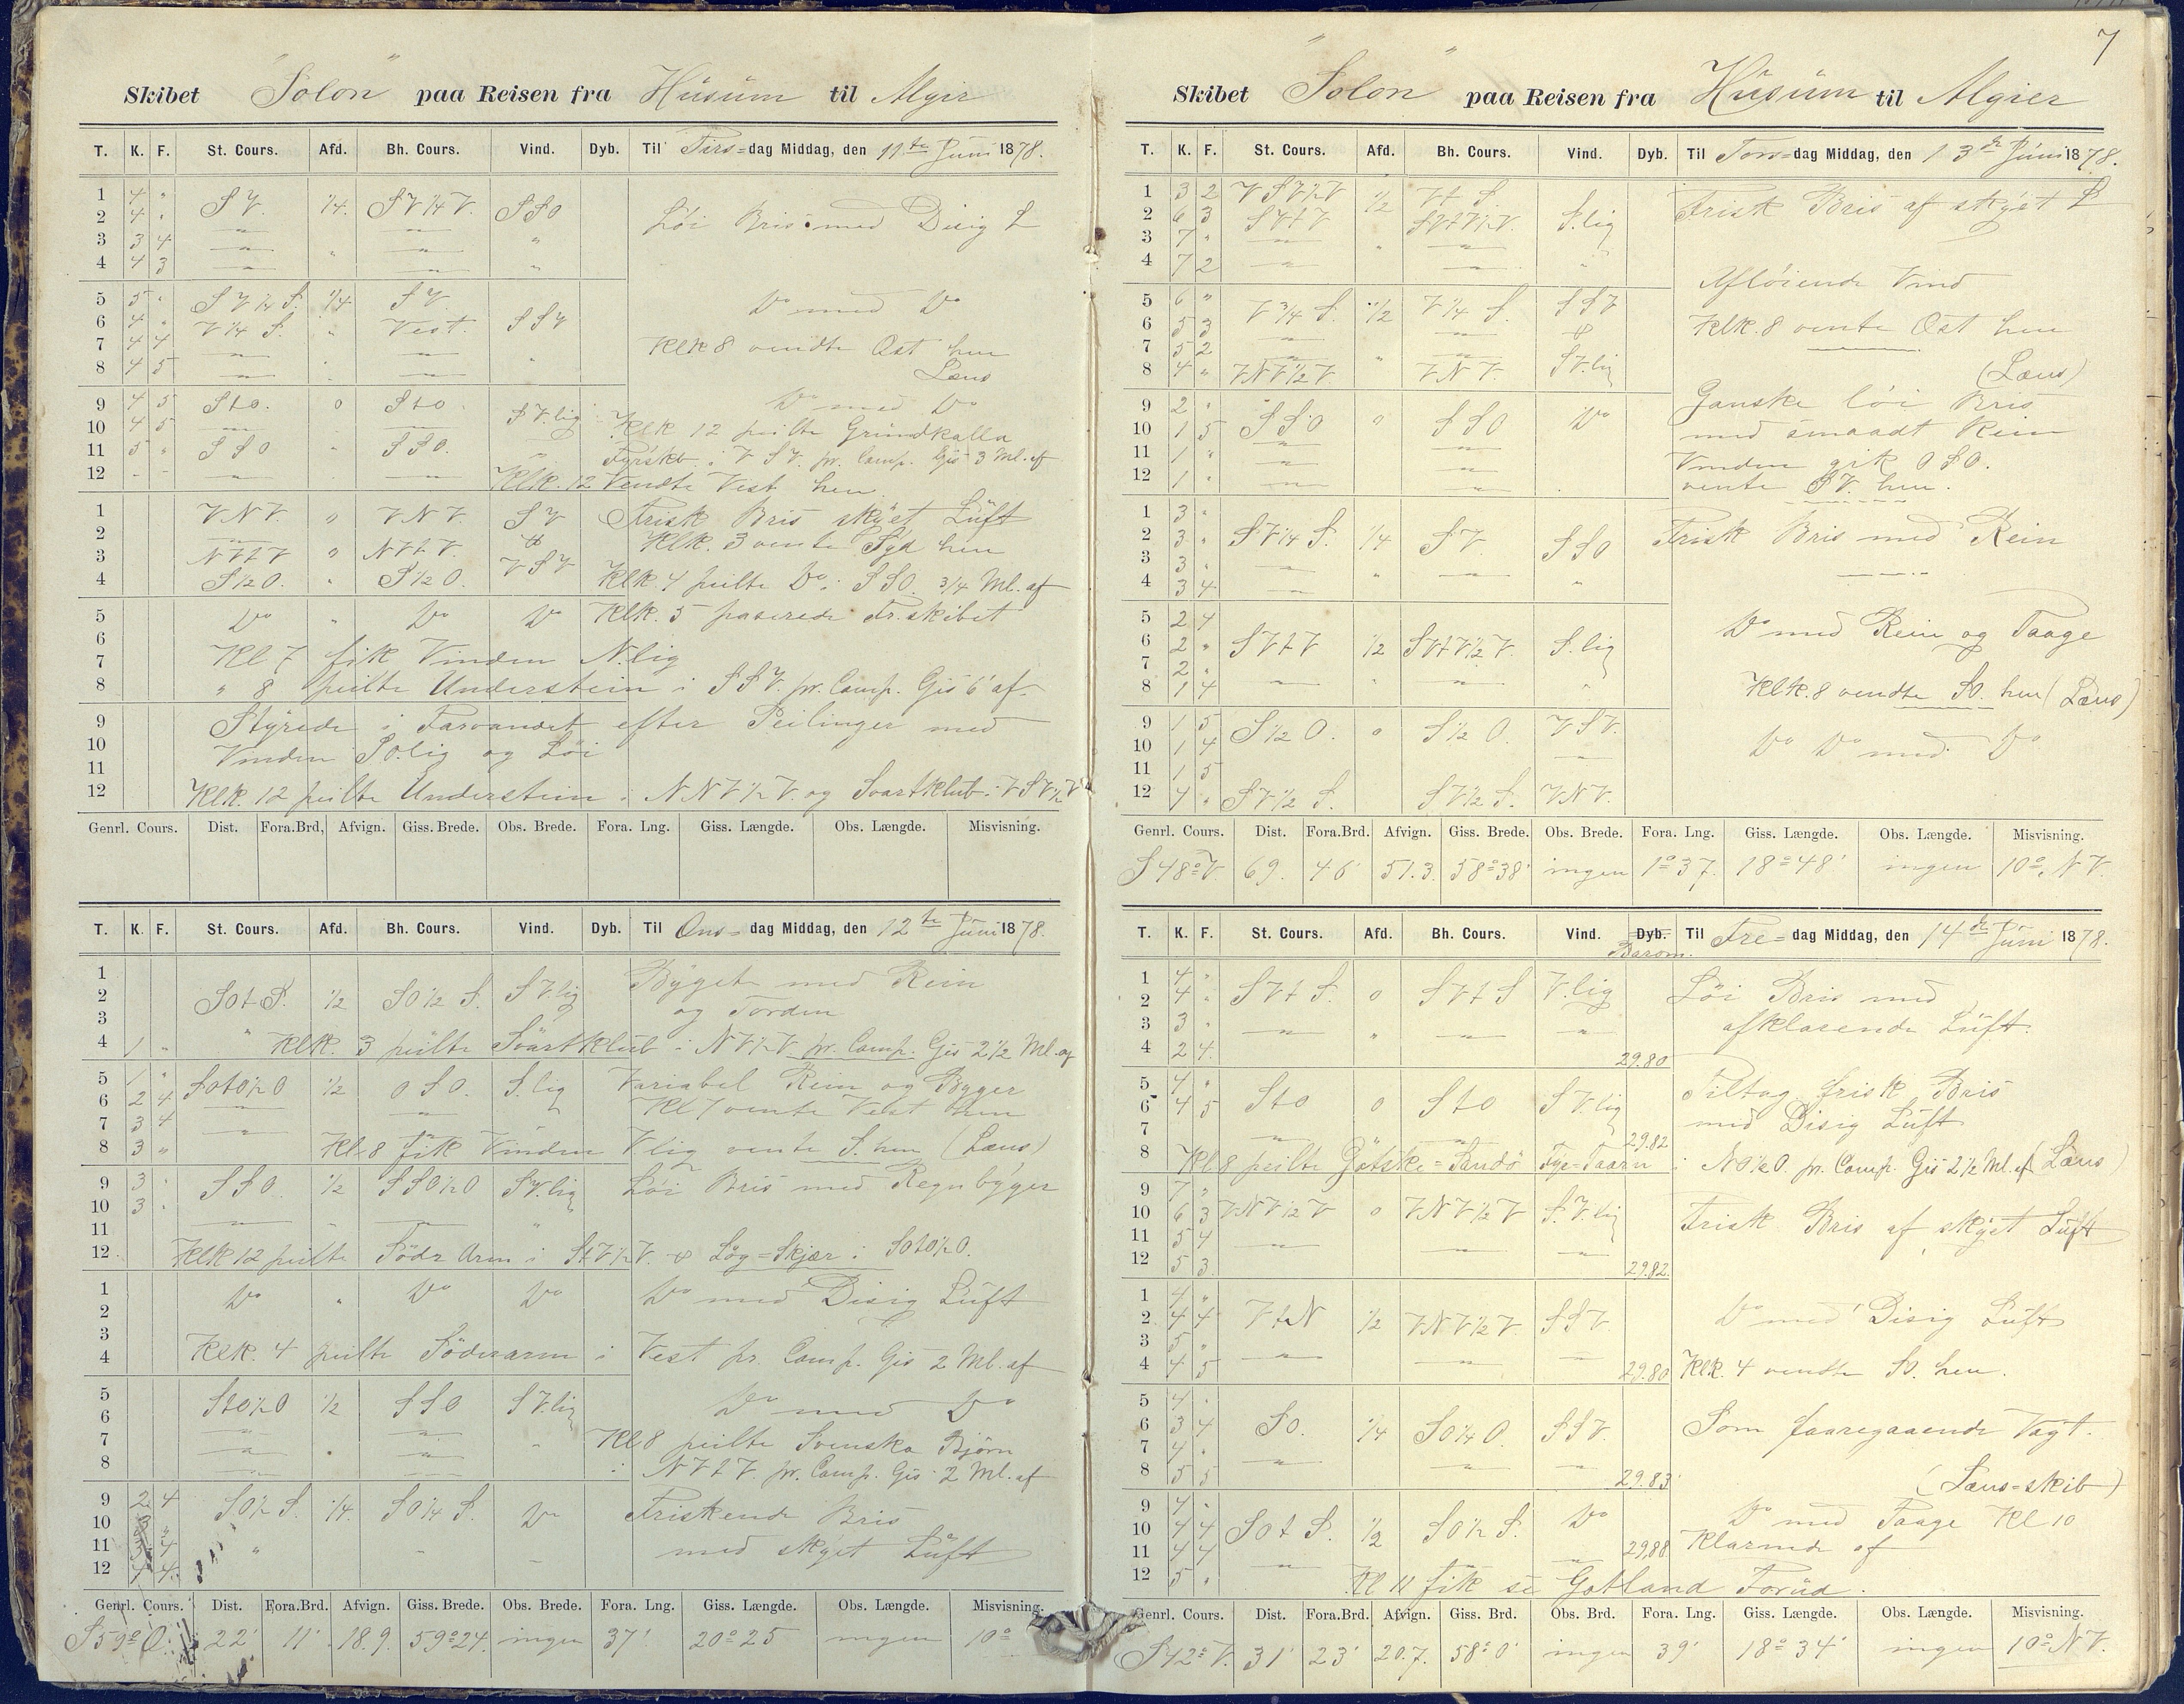 Skibet "Solon" paa Reisen fra Hüsüm til Algir
T. K. F. St. Cours. Afd. Bh. Cours. Vind. Dyb. Til Tirs=dag Middag, den 11te Juni 1878.
1 4 " SV. 1/4. SV 1/4 V. SSO
2 4 " Løi Bris med Disig L
3 3 4
4 4 3
5 5 " SV 1/4 S. 1/4 SV. Do med Do
6 4 " V 1/4 S. " Vest. SSV
7 4 4 Klk 8 vendte Ost hen
8 4 5 Læns
9 4 5 Sto. 0 Sto. SV.lig Do med Do
10 4 5 Klk 12 peilte Gründkalla
11 5 " SSO " SSO. Fyrskb. i VSV. pr. Comp. Gis 3 Ml. af
12 Klk. 12 Vendte Vest hen
1 VNV. " VNV. SV Frisk Bris skÿet Lüft
2 & Klk. 3 vente Syd hen
3 NVtV " NVtV.
4 S 1/2 O. " S 1/2 O. VSV Klk. 4 peilte Do i SSO. 3/4 Ml. af
5 Do " Do Do Klk. 5 paserede Fr.skibet
6
7 Kl 7 fik Vinden N.lig
8 " 8 peilte Understein i SSV. pr. Comp. Gis 6' af.
9 Styrede i Farvandet efter Peilinger med
10 Vinden SO.lig og Løi
11
12 Klk. 12 peilte Understein i NNV 1/2 V. og Svartklub i VSV 1/2 V
Genrl. Cours. Dist. Fora.Brd, Afvign. Giss. Brede. Obs. Brede. Fora. Lng. Giss. Længde. Obs. Længde. Misvisning.
T. K. F. St. Cours. Afd. Bh. Cours. Vind. Dyb. Til Ons= dag Middag, den 12te Juni 1878.
1 Bÿget med Rein
2 SOt.S. 1/2 SO 1/2 S. SV.lig og Torden
3
4 1 " " Klk. 3 peilte Svartklub i NV 1/2 V pr. Comp. Gis 2 1/2 Ml. af
5 1 " SOtO 1/2 O 1/2 OSO. S.lig Variabel Rein og Bÿger
6 2 4 Kl 7 vente Vest hen
7 3 4
8 3 " Kl 8 fik Vinden V.lig vente S. hen (Læns)
9 3 " SSO. 1/2 SSO 1/2 O SV.lig Løi Bris med Regnbÿger
10 3 "
11
12 Klk 12 peilte Söder Arm i StV 1/2 V. & Låg=Skjær i SOtO 1/2 O.
1 Do " Do Do Do med Disig Lüft
2
3
4 Klk. 4 peilte Söderarm i Vest pr. Comp. Gis 2 Ml. af
5 StO 1/2 O 1/2 SSO SV.lig Do med Do
6
7 Kl 8 peilte Svenska Björn
8 i NVtV. pr. Comp. Gis 2 Ml. af
9 2 4 SO 1/2 S. 1/4. SO 1/4 S. Do Friskende Bris
10
11 4 " med skÿet Lüft
12 4 4
Genrl. Cours. Dist. Fora.Brd. Afvign. Giss. Brede. Obs. Brede. Fora. Lng. Giss. Længde. Obs. Længde. Misvisning.
S 59° O. 22' 11' 18.9. 59°24. ingen 37'. 20°25 ingen 10°
7
Skibet "Solon" paa Reisen fra Hüsüm til Algier
T. K. F. St. Cours. Afd. Bh. Cours. Vind. Dyb. Til Tors=dag Middag, den 13de Jüni 1878.
1 3 2 VSV 1/2 V 1/2 Vt S. Frisk Bris af skÿet L
2 6 3 SVtV SVtV 1/2 V. S.lig
3 7 "
4 7 2 Afløiende Vind
5 6 " V 3/4 S. 1/2 V 1/4 S. SSV
6 5 3 & Klk. 8 vente Ost hen
7 5 2
8 4 " VNV 1/2 V " VNV. SV.lig (Læns)
9 2 " SSO " SSO Do Ganske løi Bris
10 1 5 med smaadt Rein
11 1 " Vinden gik OSO.
12 1 " vente SV. hen.
1 3 "
2 3 " SV 1/4 S. 1/4 SV. SSO Frisk Bris med Rein
3 3 "
4 3 4
5 2 4 Do med Rein og Taage
6 2 " SVtV 1/2 SVtV 1/2 V. S.lig
7 2 "
8 1 4 Klk. 8 vendte SO. hen (Læns)
9 1 5 S 1/2 O. 0 S 1/2 O. VSV.
10 1 4 Do Do med Do
11 1 5
12 4 " SV 1/2 S. SV 1/2 S. VNV.
Genrl. Cours. Dist. Fora.Brd. Afvign. Giss. Brede. Obs. Brede. Fora. Lng. Giss. Længde. Obs. Længde. Misvisning.
S 48° V. 69. 46' 51.3. 58°38' ingen 1°37. 18°48' ingen 10° NV.
T. K. F. St. Cours. Afd. Bh. Cours. Vind. Dyb. Barom. Til Fre= dag Middag, den 14de Jüni 1878.
1 4 "
2 4 " SVt S. 0 SVt S V.lig Løi Bris med
3 3 " afklarende Lüft.
4 2 4. 29.80
5 4 " Tiltog frisk Bris
6 4 5 Sto 0 Sto SV.lig med Disig Lüft
7 29.82
8 Kl 8 peilte Gotske=Sandö Fyr=Taarn i NO 1/2 O. pr. Comp. Gis 2 1/2 Ml. af (Læns)
9 7 "
10 6 3 VNV 1/2 V 0 VNV 1/2 V S.V.lig Frisk Bris af skÿet Lüft
11 5 4
12 5 3. 29.82.
1 4 "
2 4 4 VtN 1/2 VNV 1/2 V. SSV. Do med Disig Lüft
3 5 "
4 4 5 29.80 Klk. 4 vendte SO. hen.
5 4 "
6 3 4 SO. 1/4 SO 1/4 O. SSV. Som foaregaaende Vagt.
7 4 "
8 5 5 29.83 (Læns=skib)
9 4 " Do med Taage Kl 10
10 4 4 SOt S. 1/2 SO 1/2 S. Do
11 4 4 29.88. Klarnede af
12 5 " Kl 11 fik se Gotland Forüd.
Genrl. Cours. Dist. Fora.Brd. Afvign. Giss. Brd. Obs. Brd. Fora. Lng. Giss. Længde. Obs. Længde. Misvisning.
S 42° V. 31' 23' 20.7. 58°0' ingen 39' 18°34' ingen 10° NV.